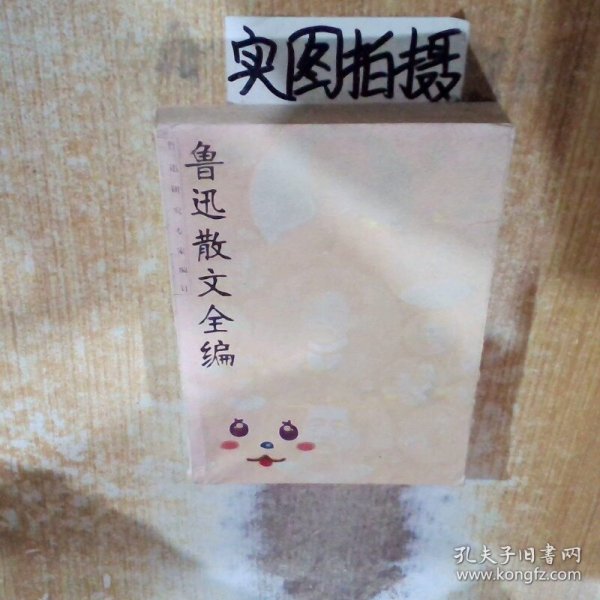 实图拍摄
鲁迅散文全编
鲁迅研究专家编订
孔夫子旧书网
www.kongfz.com